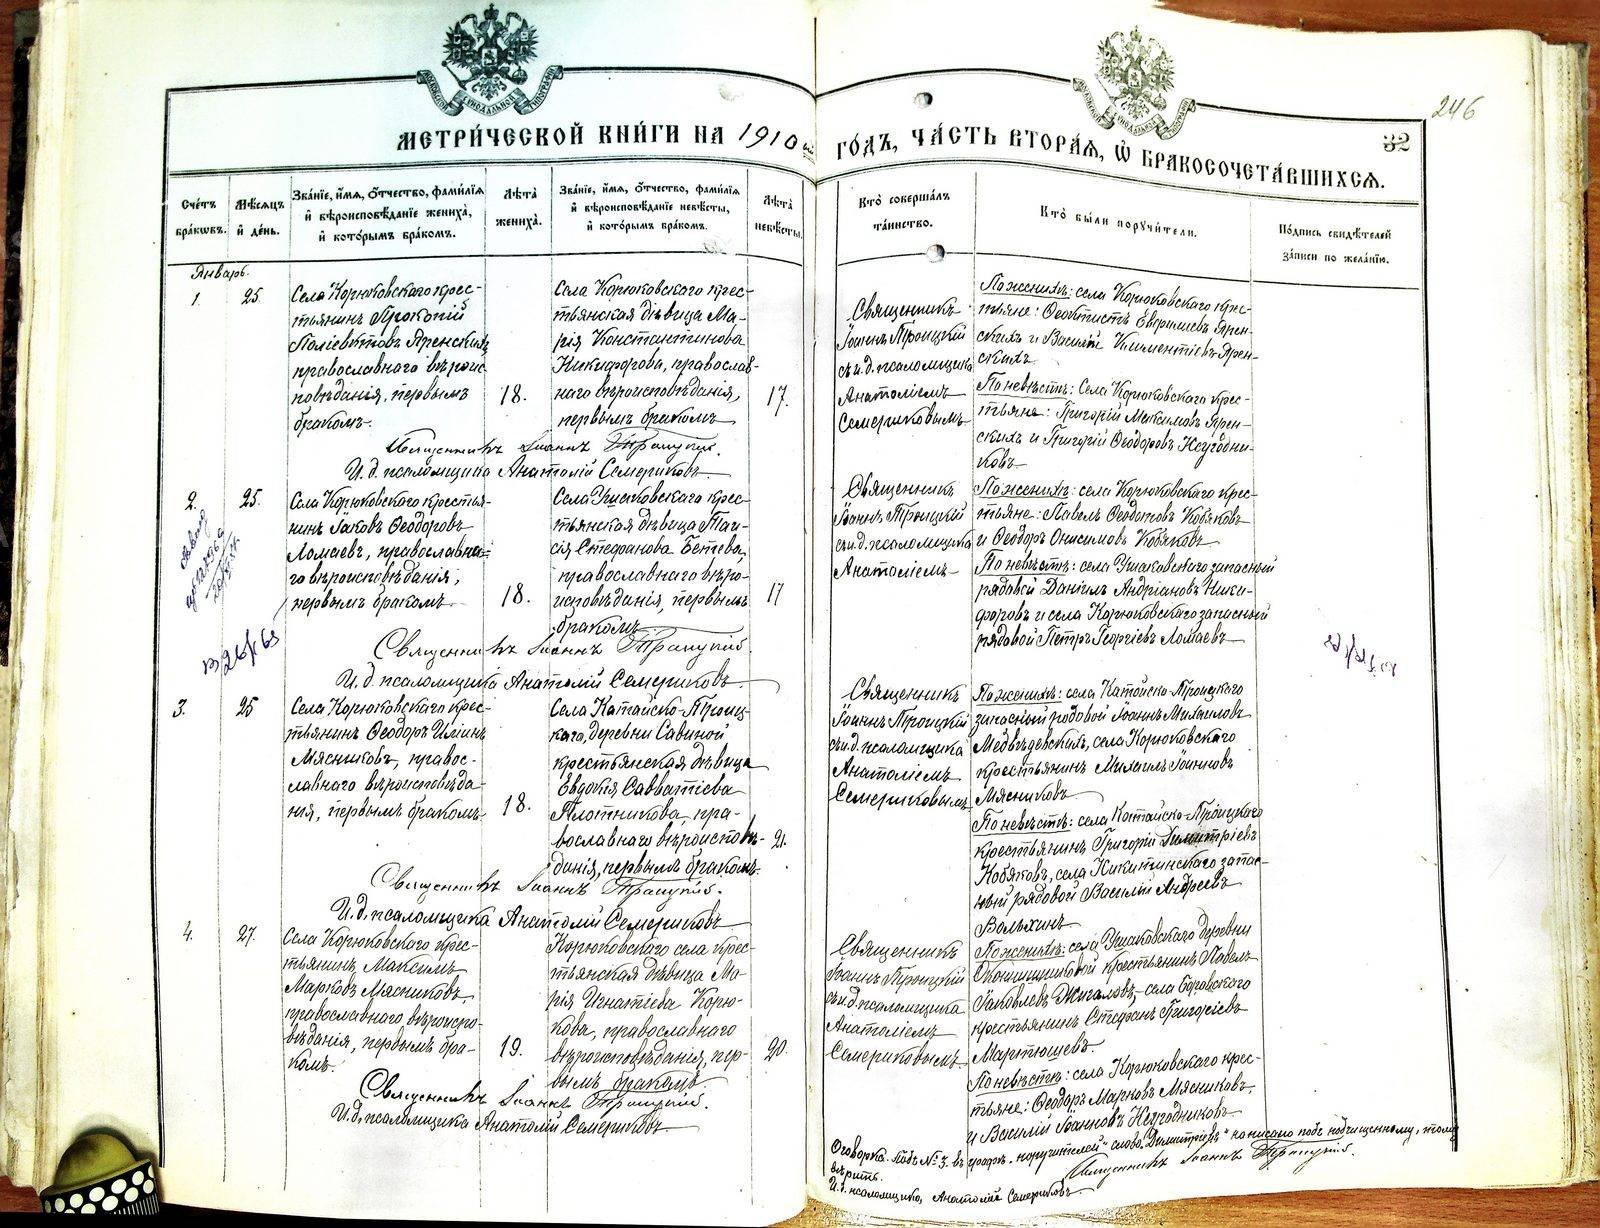 МЕТРИ́ЧЕСКОЙ КНИ́ГИ НА 1910 ый ГО́ДЪ, ЧА́СТЬ ВТОРА́Я, Ѿ БРАКОСОЧЕТА́ВШИХСЯ.
246
32
Сче́тъ бра́кѡвъ.
Мѣ́сяцъ и҆ де́нь.
Зва́нїе, и҆́мя, ѻ҆́тчество, фами́лїя и҆ вѣроисповѣ́данїе жениха̀, и҆ кото́рымъ бра́комъ.
Лѣ́та жениха̀.
Зва́нїе, и҆́мя, ѻ҆́тчество, фами́лїя и҆ вѣроисповѣ́данїе невѣ́сты, и҆ кото́рымъ бра́комъ.
Лѣ́та невѣ́сты.
Кто̀ соверша́лъ та́инство.
Кто̀ бы́ли поручи́тели.
По́дпись свидѣ́телей за́писи по жела́нїю.
Январь.
1.
25.
Села Корюковскаго крес-
тьянинъ Прокопій
Поліевктовъ Яренскихъ
православнаго вѣроис-
повѣданія, первымъ
бракомъ.
18.
Села Корюковскаго крес-
тьянская дѣвица Ма-
рія Константинова
Никифорова, православ-
наго вѣроисповѣданія,
первымъ бракомъ
17.
Священникъ
Іоаннъ Троицкій
съ и.д. псаломщика
Анатоліемъ
Семериковымъ
По женихѣ: села Корюковскаго кре-
стьяне: Ѳеоктистъ Яренскихъ и Василій Климентіевъ Ярен-
скихъ
По невѣстѣ: Села Корюковскаго крес-
тьяне: Григорій Максимовъ Ярен-
скихъ и Григорій Ѳеодоровъ Неугодни-
ковъ
Священникъ Іоаннъ Троицкій.
И.д. псаломщика Анатолій Семериковъ
2.
25.
Села Корюковскаго крестья-
нинъ Іаковъ Ѳеодоровъ
Ломаевъ, православна-
го вѣроисповѣданія,
первымъ бракомъ
18.
Села Ушаковскаго крес-
тьянская дѣвица Таи-
сія Стефанова Бетева
православнаго вѣро-
исповѣданія, первымъ
бракомъ
17
Священникъ
Іоаннъ Троицкій
съ и.д. псаломщика
Анатоліемъ
По женихѣ: села Корюковскаго крес-
тьяне: Павелъ Ѳеодотовъ Кобяковъ
и Ѳеодоръ Онисимовъ Кобяковъ
По невѣстѣ: села Ушаковскаго запасный
рядовой Даніилъ Андріановъ Ники-
форовъ и села Корюковскаго запасный
рядовой Петръ Георгіевъ Ломаевъ
Священникъ Іоаннъ Троицкій.
И.д. псаломщика Анатолій Семериковъ
3.
25
Села Корюковскаго крес-
тьянинъ Ѳеодоръ Иліинъ
Мясниковъ, правос-
лавнаго вѣроисповѣда-
нія, первымъ бракомъ
18.
Села Катайско-Троиц-
каго, деревни Савиной
крестьянская дѣвица
Евдокія Савватіева
Плотникова, пра-
вославнаго вѣроисповѣ-
данія, первымъ бракомъ
21.
Священникъ
Іоаннъ Троицкій
съ и.д. псаломщика
Анатоліемъ
Семериковымъ
По женихѣ: села Катайско-Троицкаго
запасный рядовой Іоаннъ Михаиловъ
Медвѣдевскихъ, села Корюковскаго
крестьянинъ Михаилъ Іоанновъ
Мясниковъ
По невѣстѣ: села Катайско-Троицкаго
крестьянинъ Григорій Димитріевъ
Кобяковъ, села Никитинскаго запас-
ный рядовой Василій Андреевъ
Вольхинъ
Священникъ Іоаннъ Троицкій.
И.д. псаломщика Анатолій Семериковъ
4.
27.
Села Корюковскаго крес-
тьянинъ Максимъ
Марковъ Мясниковъ
православнаго вѣроиспо-
вѣданія, первымъ бра-
комъ.
19.
Корюковскаго села крес-
тьянская дѣвица Ма-
рія Игнатіева Корю-
кова, православнаго
вѣроисповѣданія, пер-
вымъ бракомъ
20.
Священникъ
Іоаннъ Троицкій
съ и.д. псаломщика
Анатоліемъ
Семериковымъ
По женихѣ: села Ушаковскаго деревни
крестьянинъ Павелъ
Іаковлевъ Жигаловъ, села Боровскаго
крестьянинъ Стефанъ Григоріевъ
Мартюшевъ.
По невѣстѣ: села Корюковскаго крес-
тьяне: Ѳеодоръ Марковъ Мясниковъ,
и Василій Іоанновъ Неугодниковъ
Священникъ Іоаннъ Троицкій.
И.д. псаломщика Анатолій Семериковъ
Оговорка. Подъ № 3. въ графѣ „поручителей" слово „Димитріевъ" написано по подчищенному, тому
вѣрить.
Священникъ Іоаннъ Троицкій.
И.д. псаломщика Анатолій Семериковъ